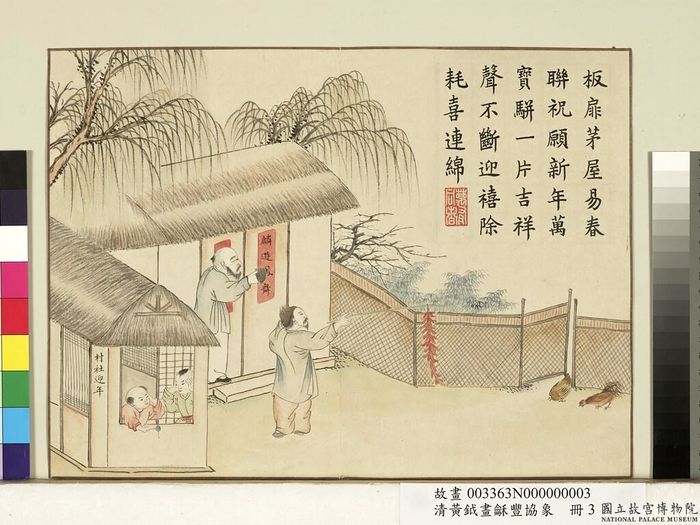 板扉茅屋易春
聯祝願新年萬
寶駢一片吉祥
聲不斷迎禧除
耗喜連綿
麟遊鳳舞
村社迎年
故畫 003363N000000003
清黃鉞畫龢豐協象 冊 3 國立故宮博物院
NATIONAL PALACE MUSEUM